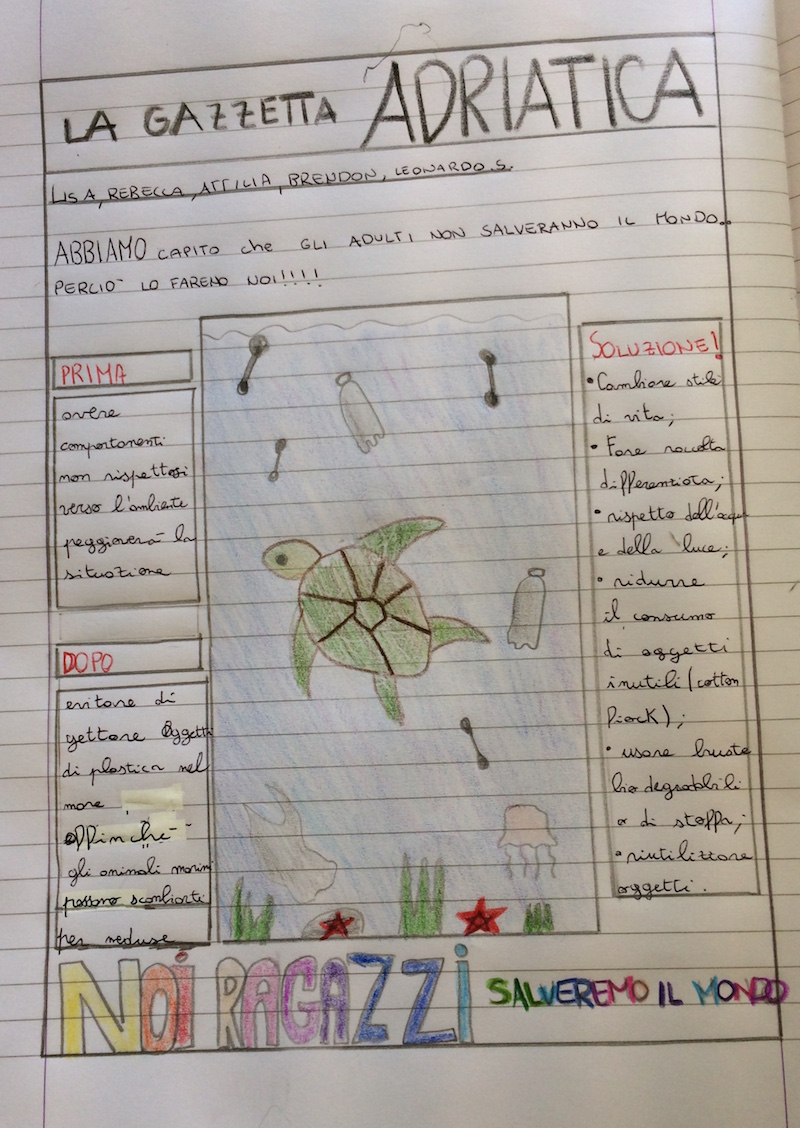 LA GAZZETTA ADRIATICA
LISA, REBECCA, ATTILIA, BRENDON, LEONARDO.S.
ABBIAMO CAPITO che GLI ADULTI NON SALVERANNO IL MONDO..
PERCIÒ LO FAREMO NOI!!!!
PRIMA
avere
comportamenti
non rispettosi
verso l'ambiente
peggiorerà la
situazione
DOPO
evitare di
gettare oggetti
di plastica nel
mare
affinchè
gli animali marini
possano scambiarti
per meduse
SOLUZIONE!
• Cambiare stile
di vita;
• Fare raccolta
differenziata;
• rispetto dell'acqua
e della luce;
• ridurre
il consumo
di oggetti
inutili (cotton
fiock);
• usare buste
biodegrabbili
o di stoffa;
• riutilizzare
oggetti.
NOI RAGAZZI SALVEREMO IL MONDO